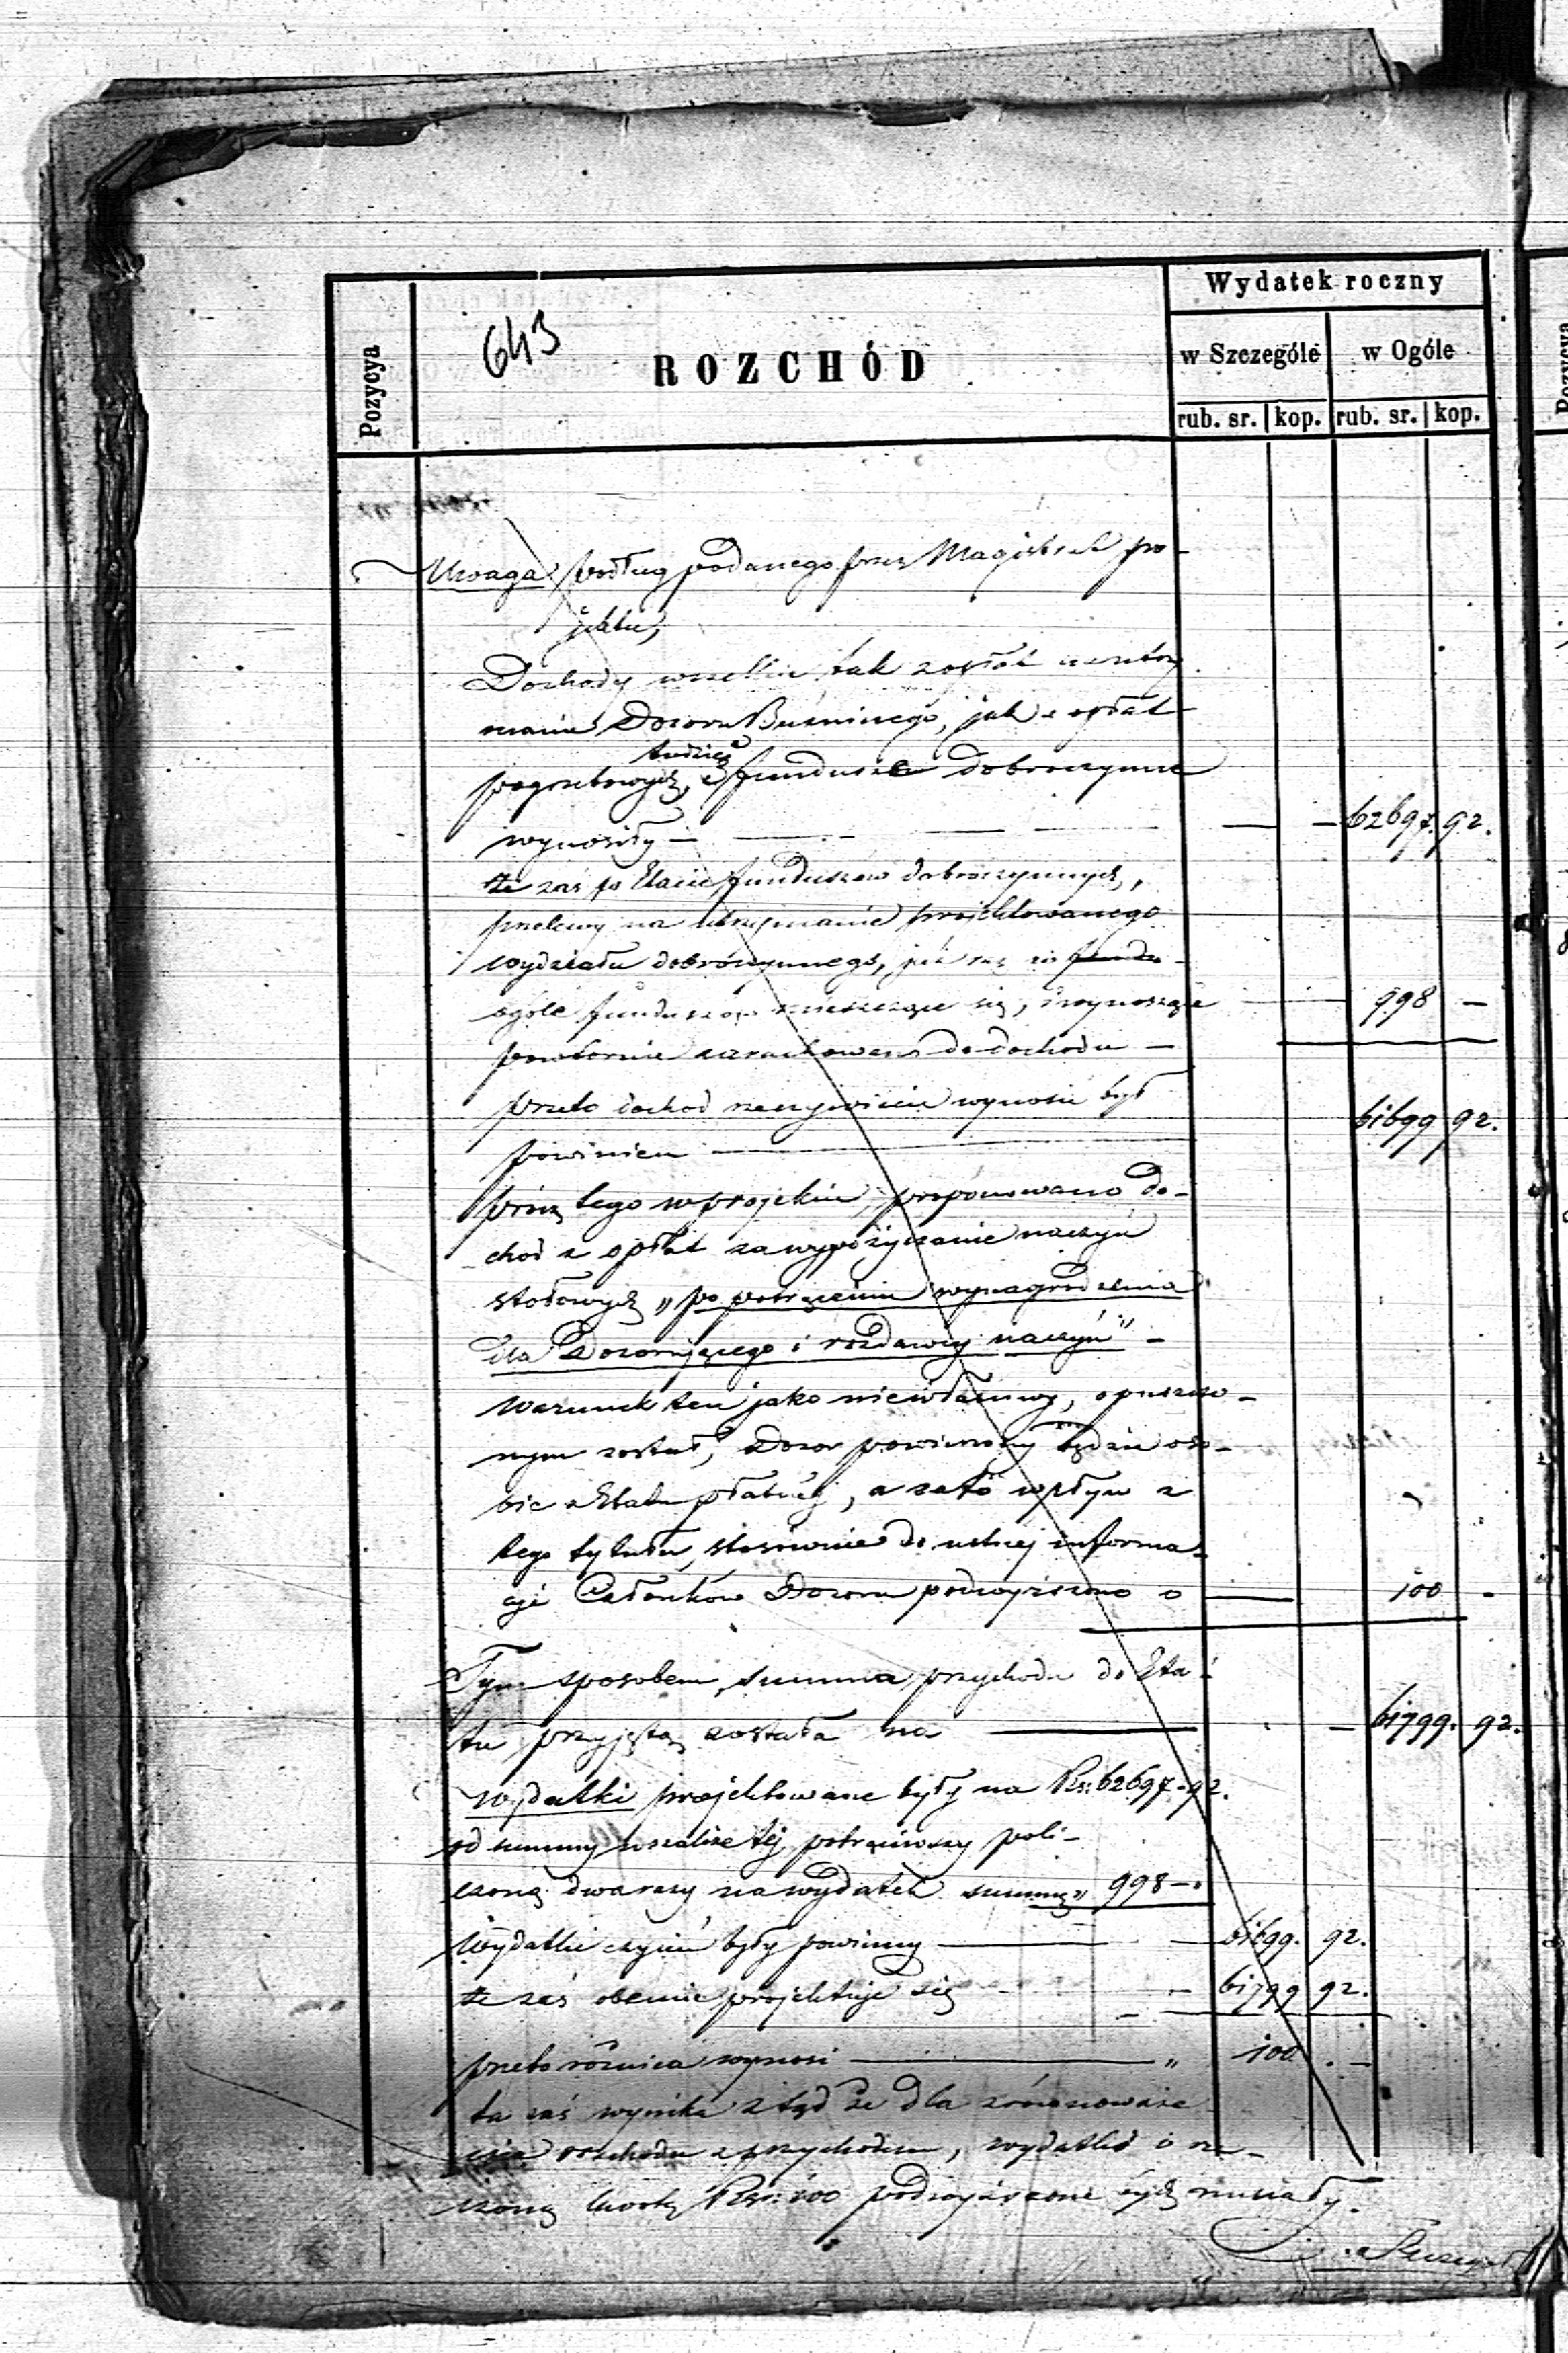 Wydatek roczny
643
Pozycya
ROZCHÓD
w Szczególe w Ogóle
rub. sr. kop. rub. sr. kop.
Uwaga podług podanego przez Magistrat pro-
jektu,
Dochody wszelkie tak z opłat na utrzy-
manie Dozoru Bużniczego, jak z opłat
tudzież
pogrzebowych, fundusze dobroczynne
wynosiły — — — — 62697. 92.
że zaś po Etacie funduszów dobroczynnych,
przelewy na utrzymanie projektowanego
wydziału dobroczynnego, już raz w fundu-
ogóle funduszów mieszczące się, i wynoszące — 998 —
powtórnie zarachowano do dochodu —
przeto dochod rzeczywiście wynosić był
powinien — 61699 92.
prócz tego w projekcie, proponowano do-
chod z opłat za wypożyczanie naczyń
stołowych „po potrąceniu wynagrodzenia
dla Dozorującego i rozdawcy naczyń" —
warunek ten jako niewłaściwy, opuszczo-
nym został, Dozor powinien być będzie oso-
bie z Etatu płatnej, a zato wpływ z
tego tytułu, stosownie do ustnej informa-
cji Członków Dozoru podwyższono o — 100 -
Tym sposobem, summa przychodu do Eta-
tu przyjętą została na — — 61799. 92.
Wydatki projektowane były na Rs: 62697 . 92.
od summy wszakże tej, potrąciwszy poli-
czoną dwa razy na wydatek summę „ 998 — .
Wydatki czynić były powinny — — 61699. 92.
że zaś obecnie projektuje się — 61799 92.
przeto różnica wynosi — „ 100 . —
ta zaś wynika ztąd że dla zrównoważe-
nia rozchodu z przychodem, wydatki o rze-
czoną kwotę Rsr: 100 podwyższone być musiały.